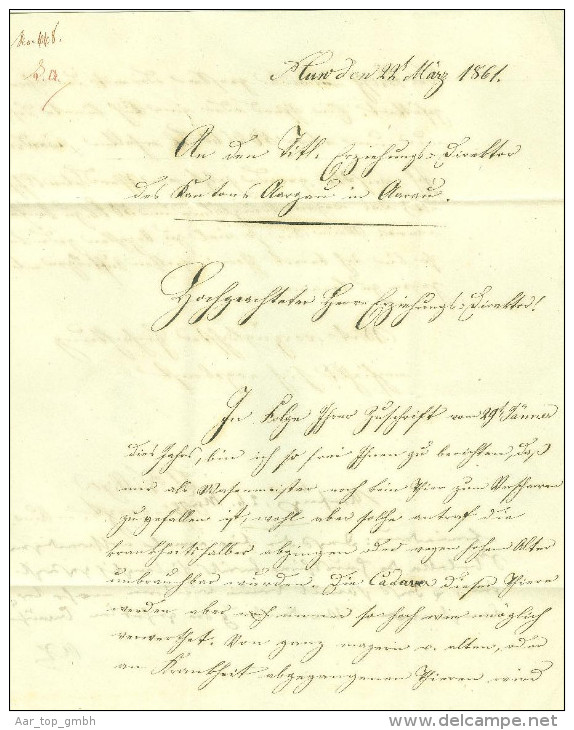 den 22t März 1861.
An den Titl. Erziehungs-Direktor
des Kantons Aargau in Aarau.
Hochgeachteter Herr Erziehungs-Direktor!
In Folge Ihrer Zuschrift vom 29t Jänner
dies Jahrs, bin ich so frei Ihnen zu berichten, daß
mir als Wasenmeister noch kein Thier zum Verscharren
zugefallen ist, wohl aber solche die
krankheitshalber abgingen oder wegen hohem Alter
unbrauchbar wurden. Die Cadaver dieser Thiere
werden aber noch immer so hoch wie möglich
verwerthet. Von ganz magern u. alten, oder
an Krankheit abgegangenen Thieren wird
Aar_top_gmbh